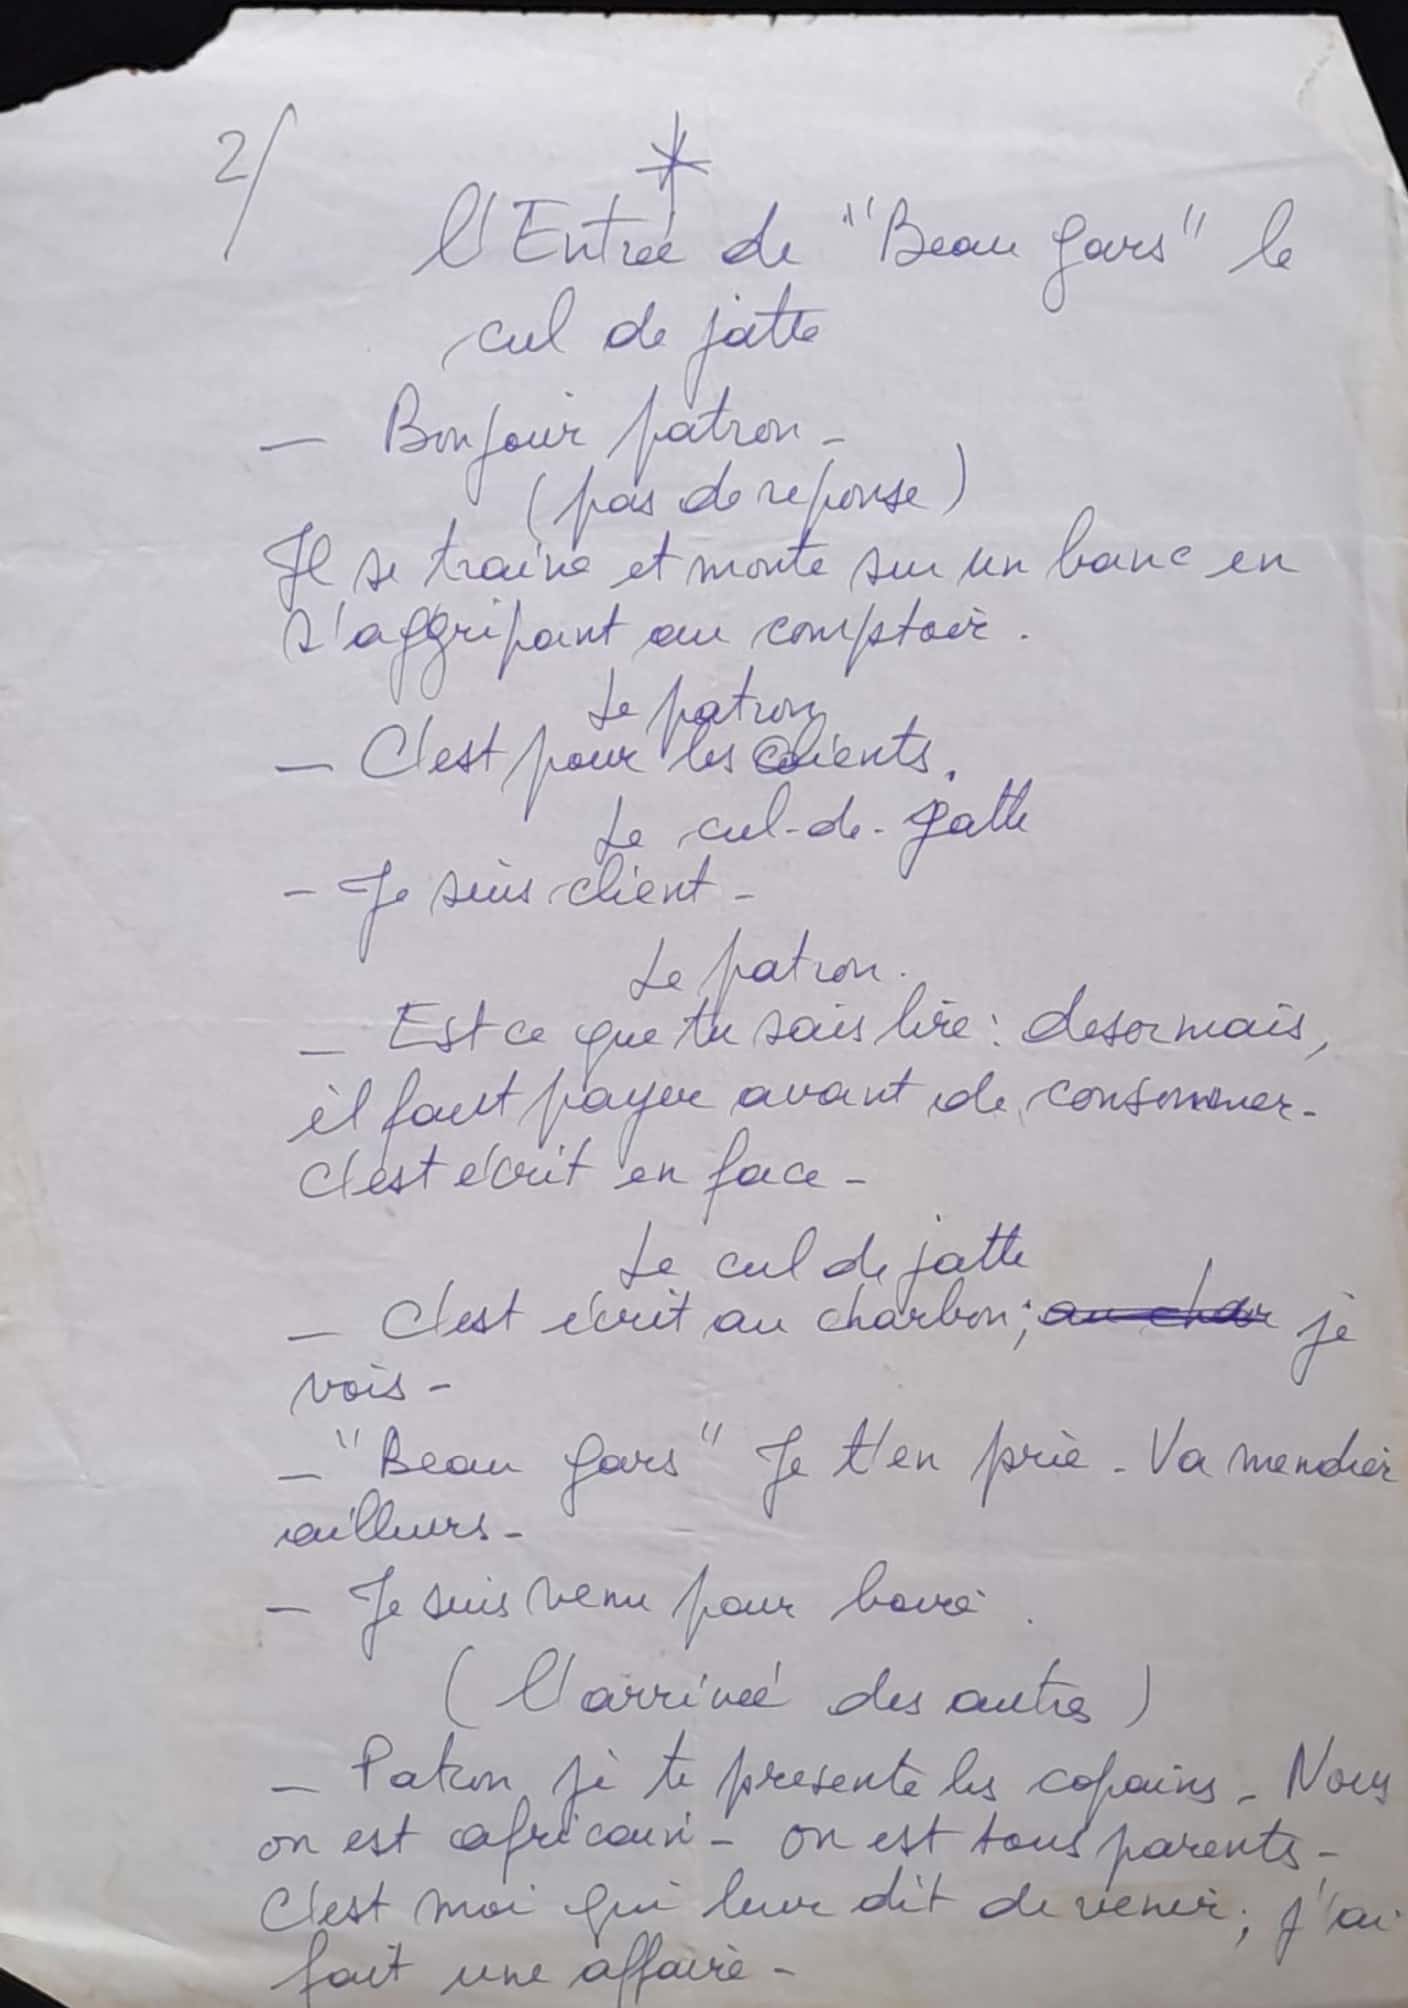 2/
*
l'Entrée de "Beau gars" le
cul de jatte
— Bonjour patron -
(pas de reponse)
Il se traine et monte sur un banc en
s'aggripant au comptoir.
Le patron
— C'est pour les clients.
Le cul-de-jatte
- Je suis client -
Le patron.
— Est ce que tu sais lire : desormais,
il faut payer avant de consommer -
c'est écrit en face -
Le cul de jatte
— C'est écrit au charbon ; au char je
vois -
— "Beau gars" Je t'en prie - Va mendier
ailleurs -
— Je suis venu pour boire.
(l'arrivée des autres)
— Patron je te presente les copains - Nous
on est africain - on est tous parents -
C'est moi qui leur dit de venir ; j'ai
fait une affaire -